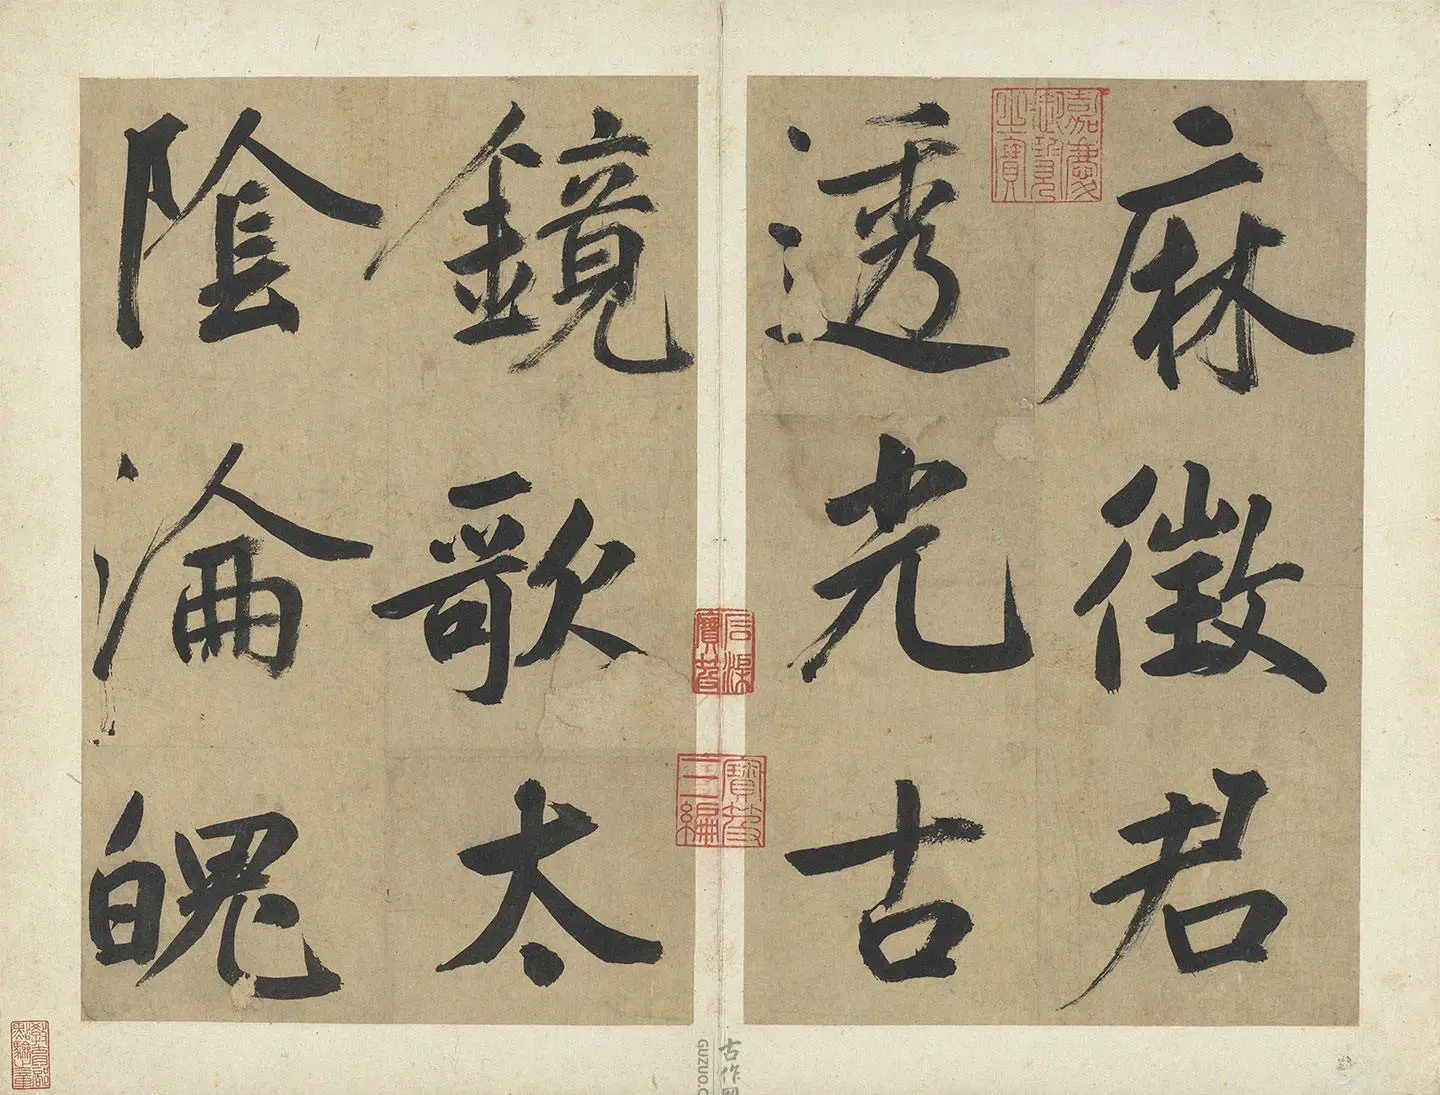 麻徵君
透光古
鏡歌太
陰淪魄
嘉慶御覽之寶
石渠寶笈
寶笈三編
教育部點驗之章
古作网
GUZUO.C